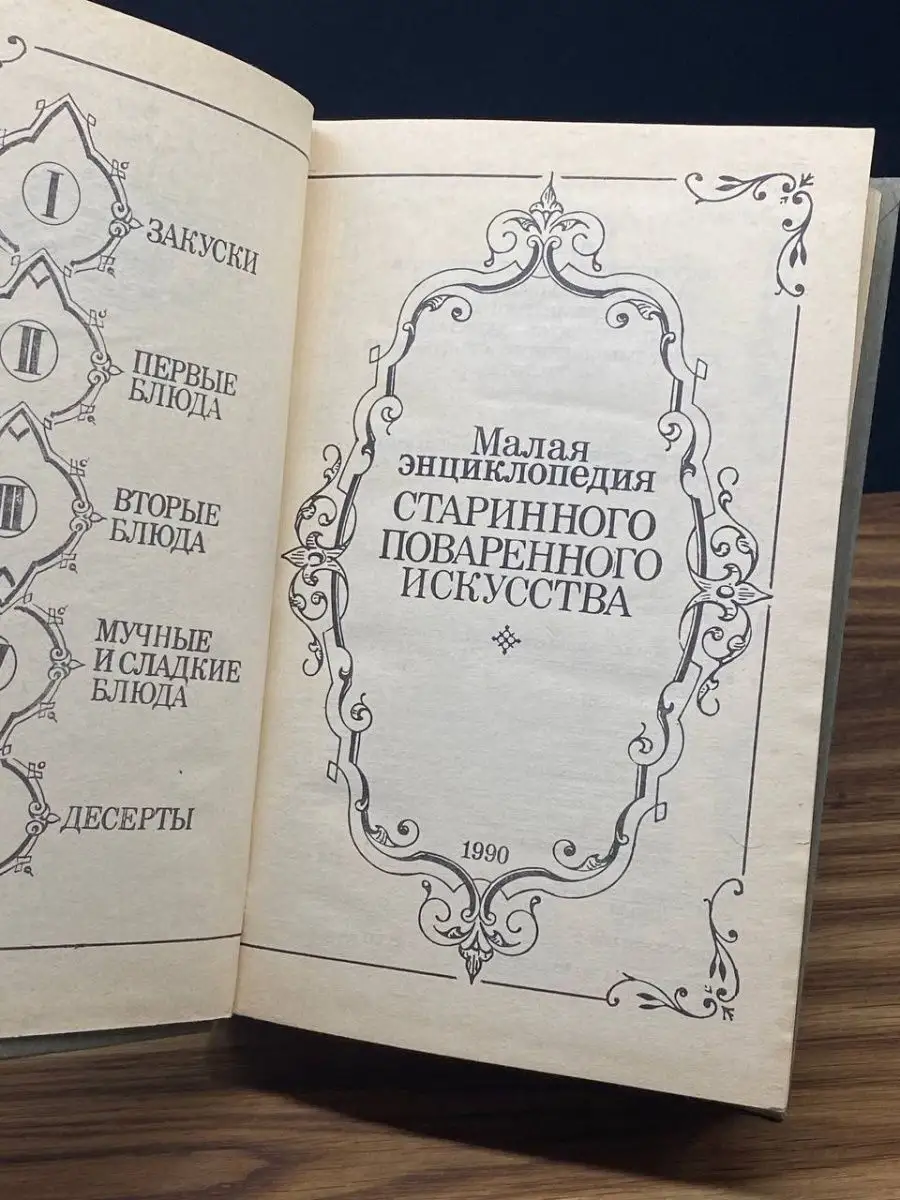 I
ЗАКУСКИ
II
ПЕРВЫЕ
БЛЮДА
III
ВТОРЫЕ
БЛЮДА
МУЧНЫЕ
И СЛАДКИЕ
БЛЮДА
ДЕСЕРТЫ
Малая
энциклопедия
СТАРИННОГО
ПОВАРЕННОГО
ИСКУССТВА
1990